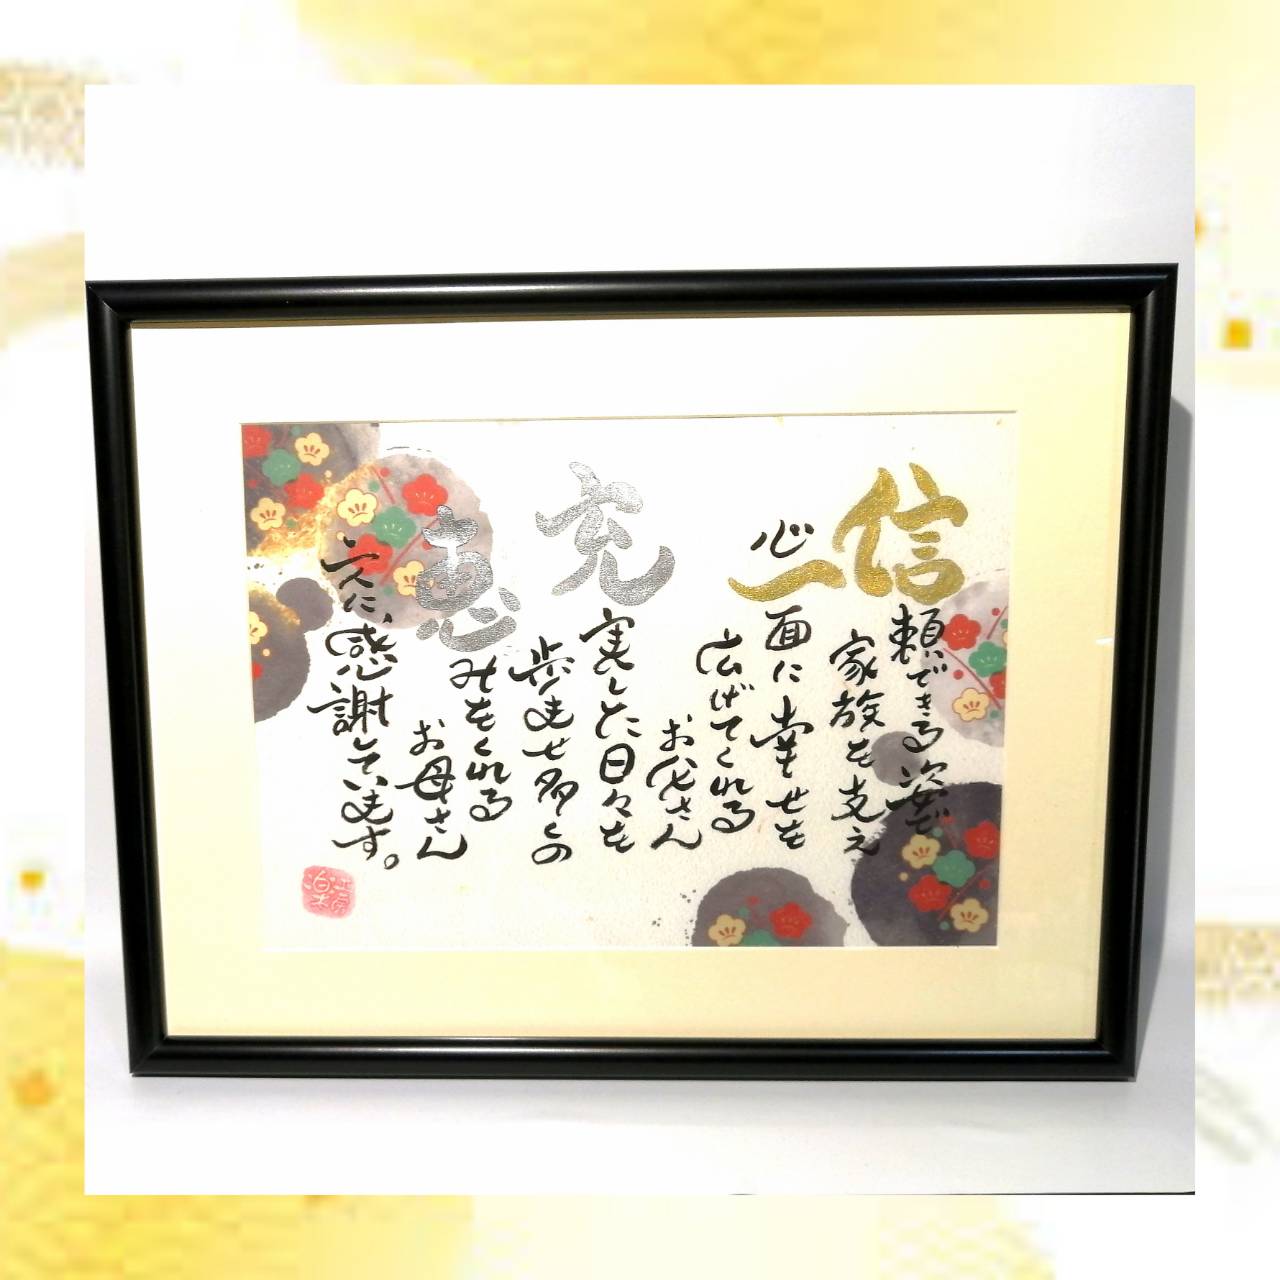 信頼できる姿で
家族を支え
心一面に幸せを
広げてくれる
お父さん
充実した日々を
歩ませ多くの
恵みをくれる
お母さん
に、感謝しています。